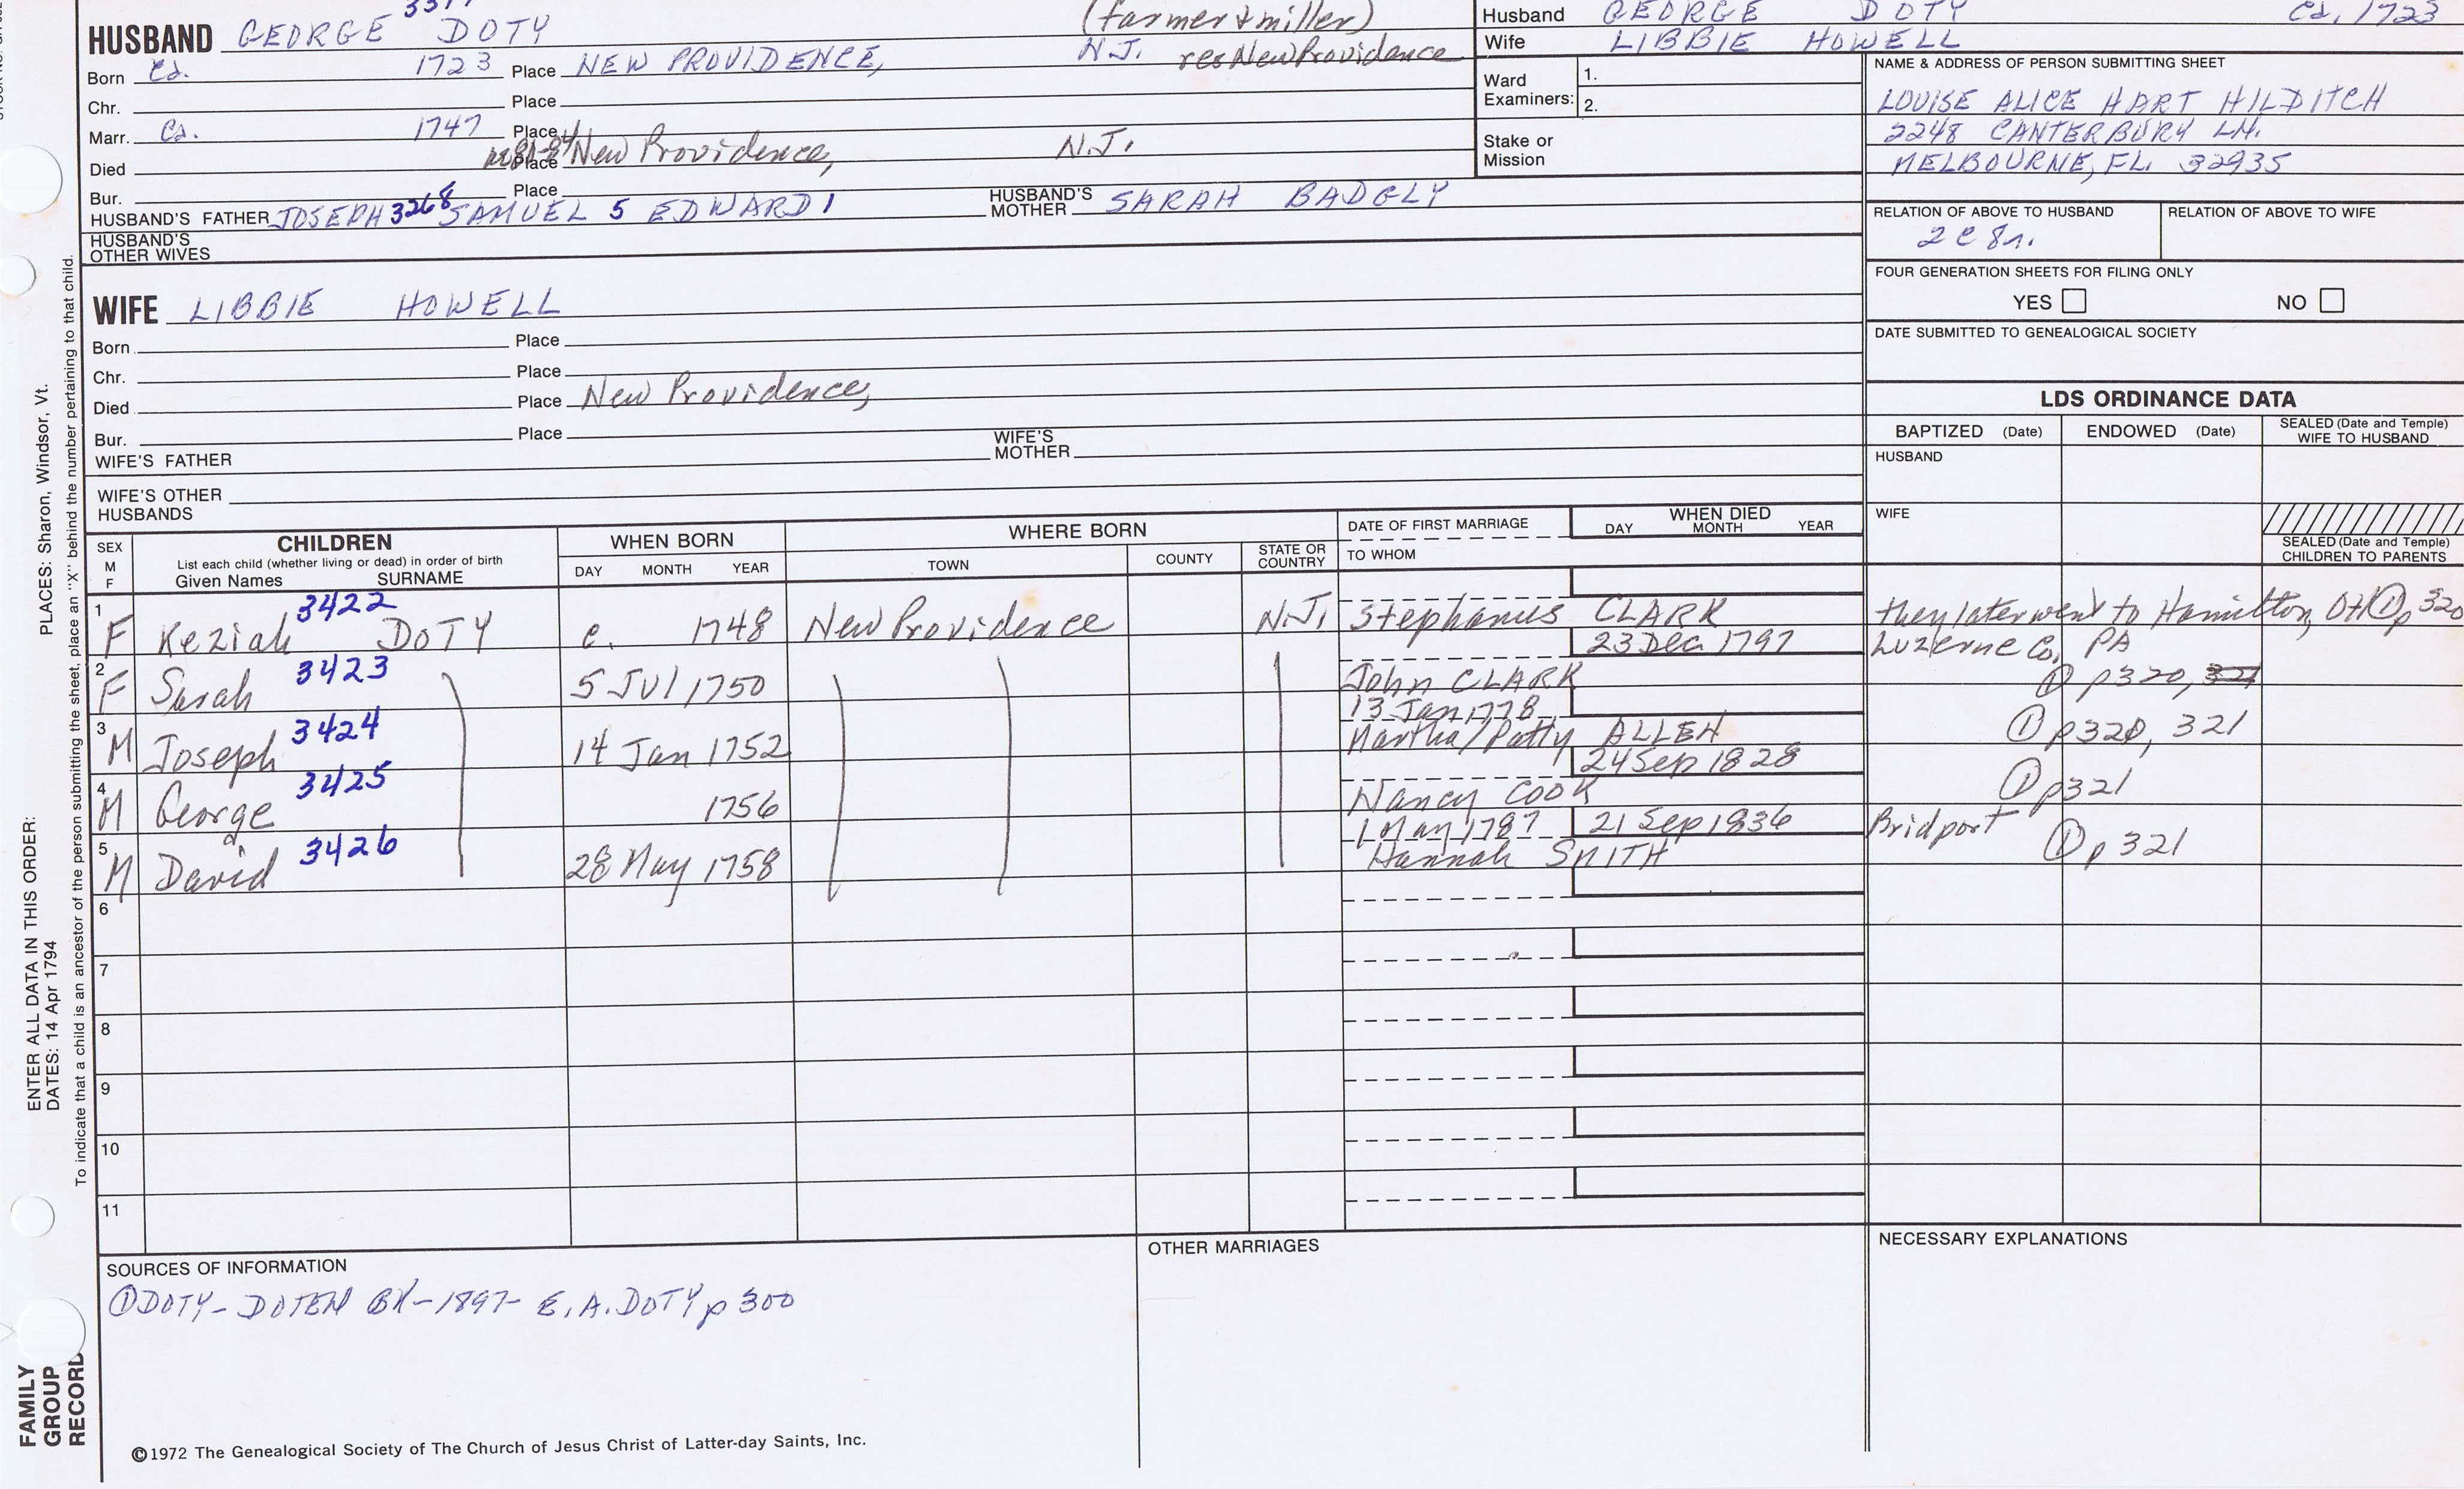 HUSBAND GEORGE DOTY (farmer & miller)
Born Ca. 1723 Place NEW PROVIDENCE, N.J. res New Providence
Chr. Place
Marr. Ca. 1747 Place
Died Place New Providence, N.J.
Bur. Place
HUSBAND'S FATHER JOSEPH 3268 SAMUEL 5 EDWARD 1 HUSBAND'S MOTHER SARAH BADGLY
HUSBAND'S OTHER WIVES
Husband GEORGE DOTY Ca. 1723
Wife LIBBIE HOWELL
Ward Examiners: 1.
2.
Stake or Mission
NAME & ADDRESS OF PERSON SUBMITTING SHEET
LOUISE ALICE HART HILDITCH
2248 CANTERBURY LN.
MELBOURNE, FL. 32935
RELATION OF ABOVE TO HUSBAND RELATION OF ABOVE TO WIFE
2C 8r.
FOUR GENERATION SHEETS FOR FILING ONLY
YES NO
DATE SUBMITTED TO GENEALOGICAL SOCIETY
WIFE LIBBIE HOWELL
Born Place
Chr. Place
Died Place New Providence,
Bur. Place
WIFE'S FATHER WIFE'S MOTHER
WIFE'S OTHER HUSBANDS
LDS ORDINANCE DATA
BAPTIZED (Date) ENDOWED (Date) SEALED (Date and Temple) WIFE TO HUSBAND
HUSBAND
WIFE
SEALED (Date and Temple) CHILDREN TO PARENTS
SEX M F CHILDREN WHEN BORN WHERE BORN DATE OF FIRST MARRIAGE WHEN DIED
List each child (whether living or dead) in order of birth
Given Names SURNAME DAY MONTH YEAR TOWN COUNTY STATE OR COUNTRY TO WHOM DAY MONTH YEAR
1 F Keziah 3422 DOTY c. 1748 New Providence N.J. Stephanus CLARK they later went to Hamilton, OH ① p 320
23 Dec 1797 Luzerne Co, PA
2 F Sarah 3423 5 Jul 1750 John CLARK ① p320, 321
13 Jan 1778
3 M Joseph 3424 14 Jan 1752 Martha/Patty ALLEN ① p320, 321
24 Sep 1828
4 M George 3425 1756 Nancy COOK ① p321
1 May 1787 21 Sep 1836 Bridport
5 M David 3426 28 May 1758 Hannah SMITH ① p 321
6
7
8
9
10
11
SOURCES OF INFORMATION
① DOTY-DOTEN BK-1897- E.A. DOTY p 300
OTHER MARRIAGES
NECESSARY EXPLANATIONS
©1972 The Genealogical Society of The Church of Jesus Christ of Latter-day Saints, Inc.
FAMILY GROUP RECORD
ENTER ALL DATA IN THIS ORDER:
DATES: 14 Apr 1794
PLACES: Sharon, Windsor, Vt.
To indicate that a child is an ancestor of the person submitting the sheet, place an "X" behind the number pertaining to that child.